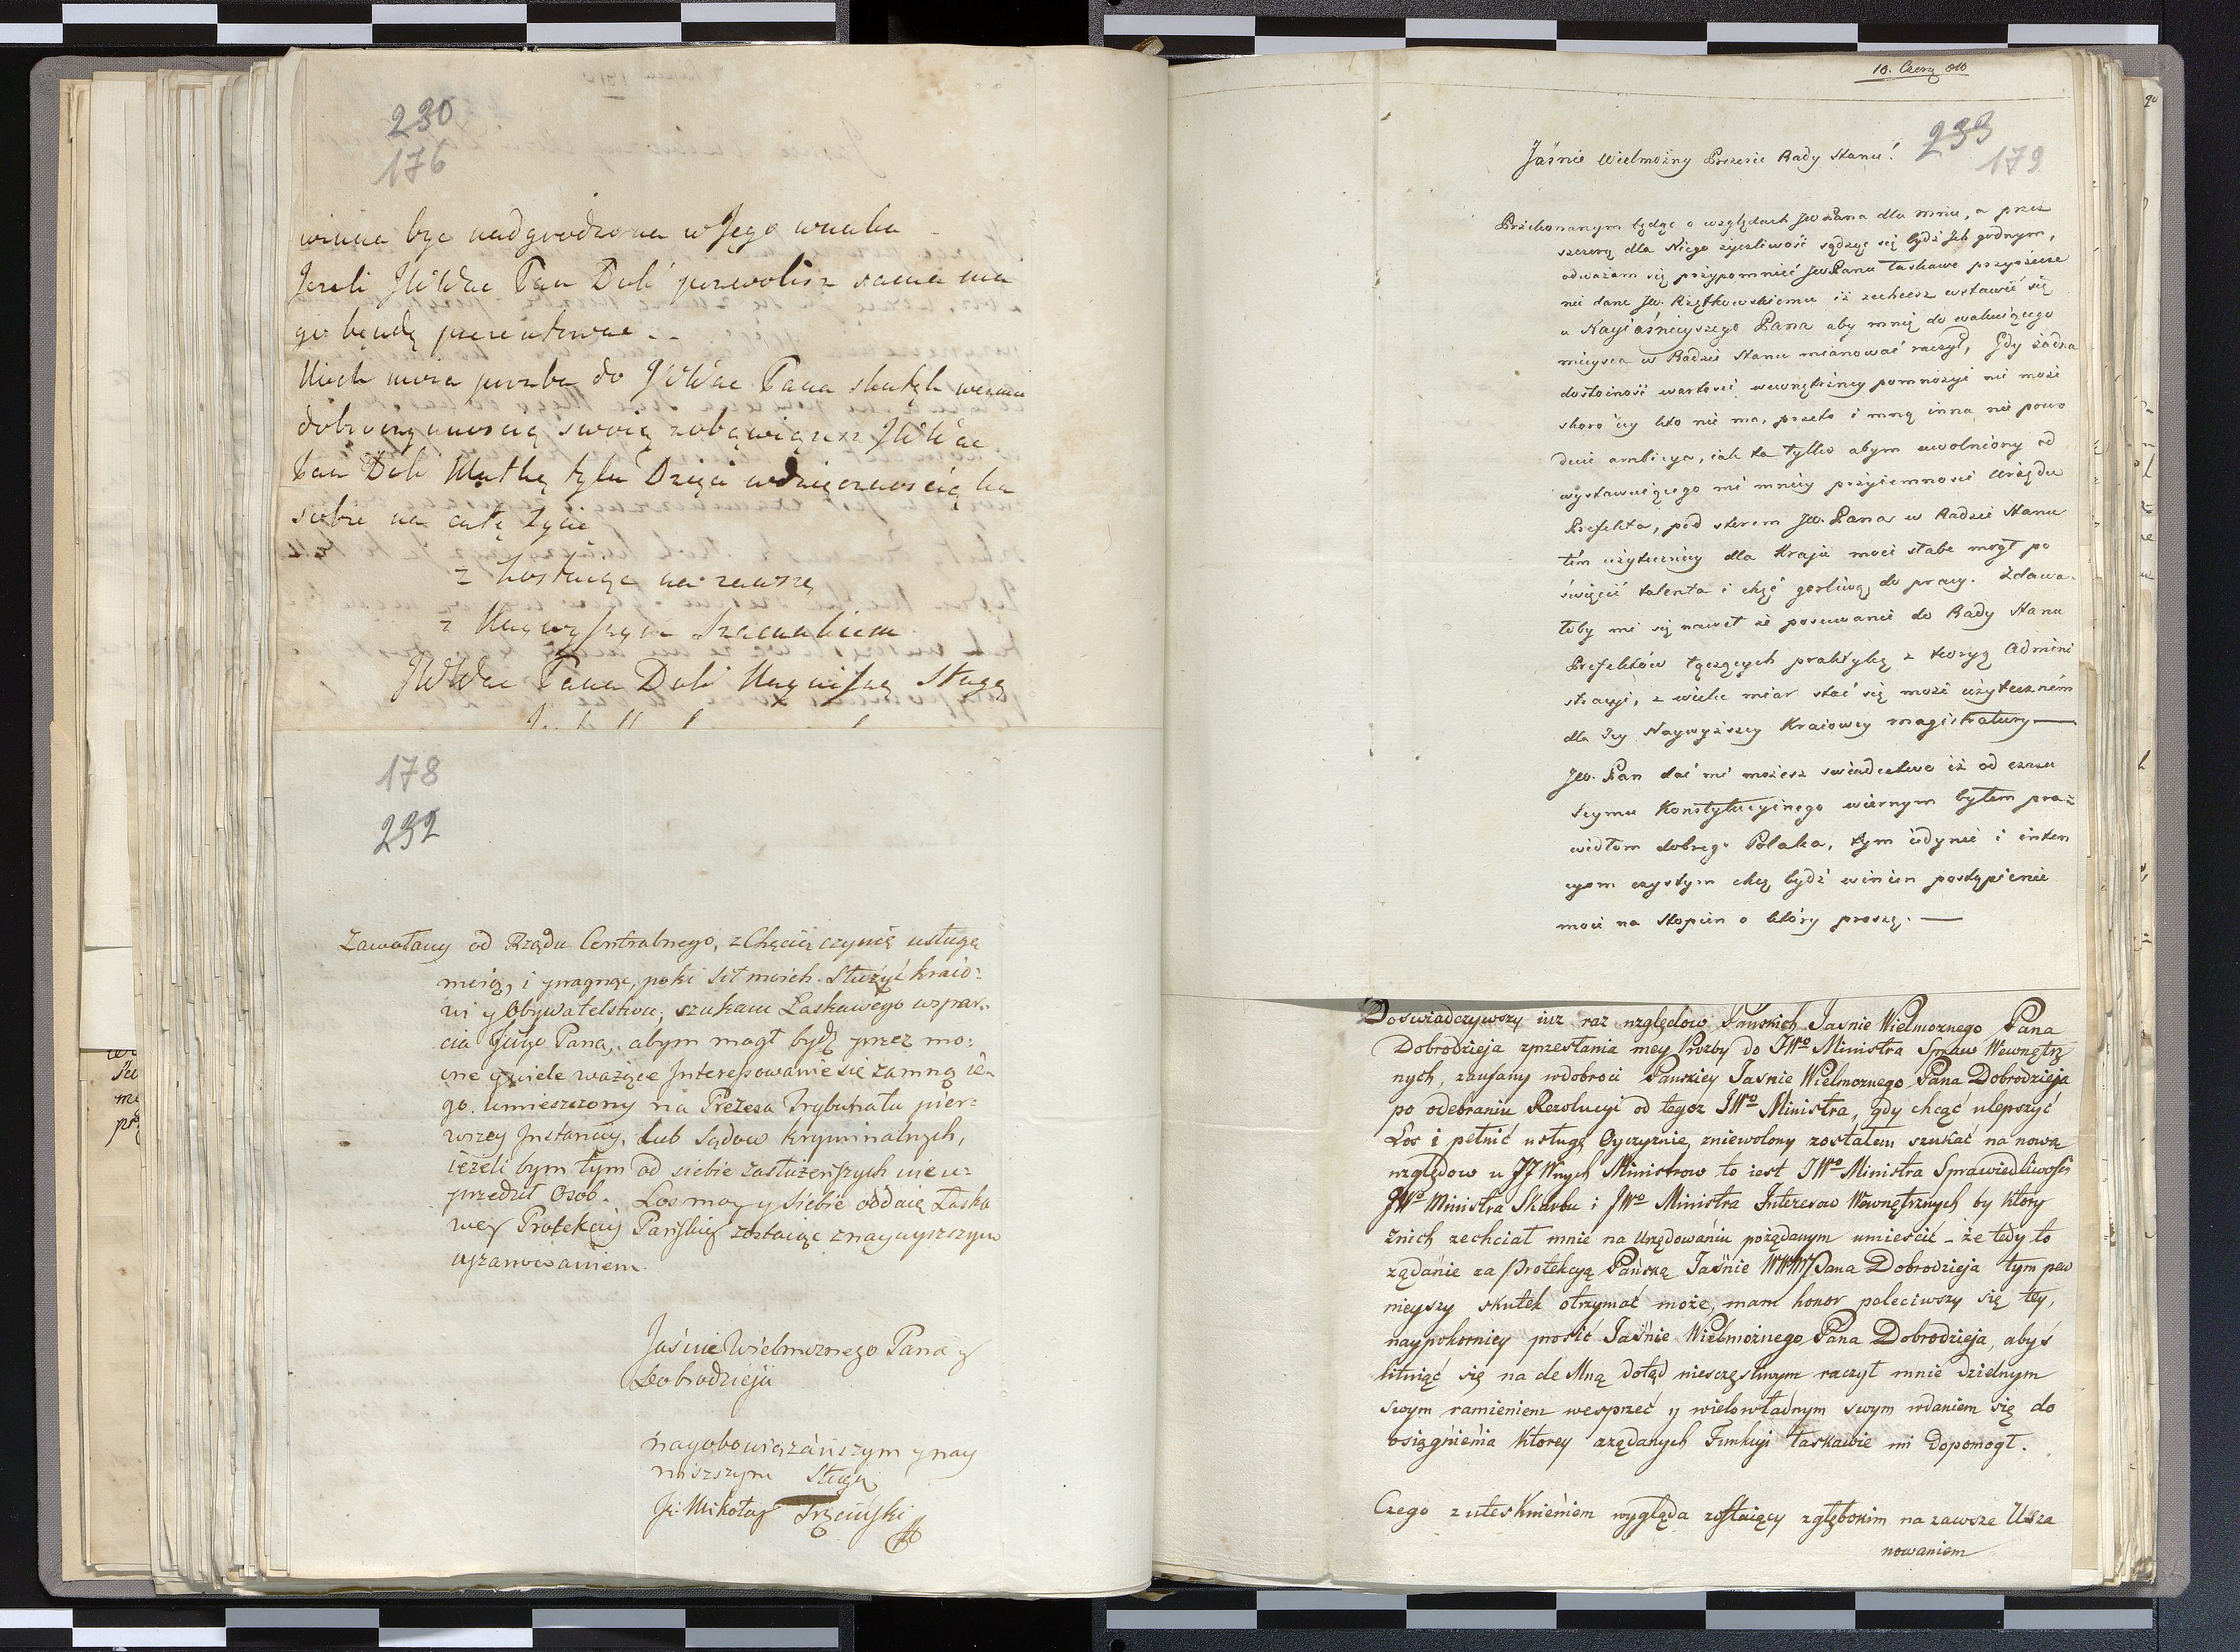 230
176
winna byc nadgrodzona w Jego wnuku
Jezeli JWWac Pan Dob pozwolisz sama mu
go będę prezentowac
Niech moia prozba do JWWac Pana skutek wezmie
dobroczynnoscią swoią zobowiązesz JWWac
Pan Dob Matkę tylu Dzieci wdzięcznoscią ku
sobie na całe Zycie
z
z Naywyszym Szacunkiem
JWWac Pana Dob Nayniszą Sługą
178
232
Zawołany od Rządu Centralnego, z Chęcią czynię usługę
moię, i pragnąc, poki sił moich. Służyć kraio:
wi y Obywatelstwu, szukam Łaskawego wspar:
cia Jego Pana, abym mogł bydz przez mo:
cne y wiele ważące Interessowanie się zamną ie:
go. umieszczony na Prezesa Trybunału pier:
wszey Instancyi, lub Sądow kryminalnych,
ieżeli bym tym od siebie zasłużenszych nie u:
przedził Osob. Los moy y Siebie oddaię Łaska
wey Protekcyi Pańskiey zostaiąc z naywyszszym
uszanowaniem.
Jaśnie Wielmoznego Pana y
Dobrodzieja
nayobowiązańszym y nay
niszszym Sługą
Mikołay Trzciński
10. Czerw 810
233
179
Jaśnie Wielmożny Prezesie Rady Stanu!
Przekonanym będąc o względach JW Pana dla mnie, a przez
szczerą dla Niego życzliwość sądząc się bydź Jch godnym,
odważam się przypomnieć JW. Panu łaskawe przyrzecze
nie dane JW. Rzętkowskiemu iż zechcesz wstawić się
u Nayiaśnieyszego Pana aby mnię do wakuiącego
mieysca w Radzie Stanu mianować raczył, Gdy żadna
dostoiność wartości wewnętrzney pomnożyć nie może
skoro iey kto nie ma, przeto i mną inna nie powo
duie ambicya, iak ta tylko abym uwolniony od
wystawuiącego mi mniey przyiemności Urzędu
Prefekta, pod sterem JW. Pana w Radzie Stanu
tém użyteczniey dla Kraju moie słabe mogł po
święcić talenta i chęć gorliwą do pracy. Zdawa=
łoby mi się nawet że posuwanie do Rady Stanu
Prefektów łączących praktykę z teoryą Admini
stracyi, z wielu miar stać się może użyteczném
dla Tey Naywyższey Kraiowey magistratury—
JW. Pan dać mi możesz świadectwo iż od czasu
Seymu Konstytucyinego wiernym byłem pra=
widłom dobrego Polaka, tym iedynie i inten
cyom czystym chcę bydź winien postąpienie
moie na stopien o który proszę. —
Doswiadczywszy iuz raz względow Pańskich Jasnie Wielmoznego Pana
Dobrodzieja zprzesłania mey Prozby do JWo Ministra Spraw Wewnętrz
nych, zaufany wdobroci Panskiey Jasnie Wielmoznego Pana Dobrodzieja
po odebraniu Rezolucyi od tegoz JWo Ministra, gdy chcąć ulepszyć
Los i pełnić usługę Oyczyznie, zniewolony zostałem szukać na nowo
względow u JJWnych Ministrow to iest JWo Ministra Sprawiedliwości
JWo Ministra Skarbu i JWo Ministra Interesow Wewnętrznych by ktory
znich zechciał mnie na Urzędowaniu pożądanym umieścić - że tedy to
ządanie za Protekcyą Pańską Jaśnie Pana Dobrodzieja tym pew
nieyszy skutek otrzymać może, mam honor poleciwszy się tey,
naypokorniey prosić Jaśnie Wielmożnego Pana Dobrodzieja, abyś
litując się na de Mną dotąd niesczęsliwym raczył mnie dzielnym
swym ramieniem wesprzeć y wielowładnym swym wdaniem się do
osiągnienia ktorey ządanych Funkcyi łaskawie mi Dopomogł.
Czego z utesknieniem wygląda zostaiący zgłębokim na zawsze Usza
nowaniem